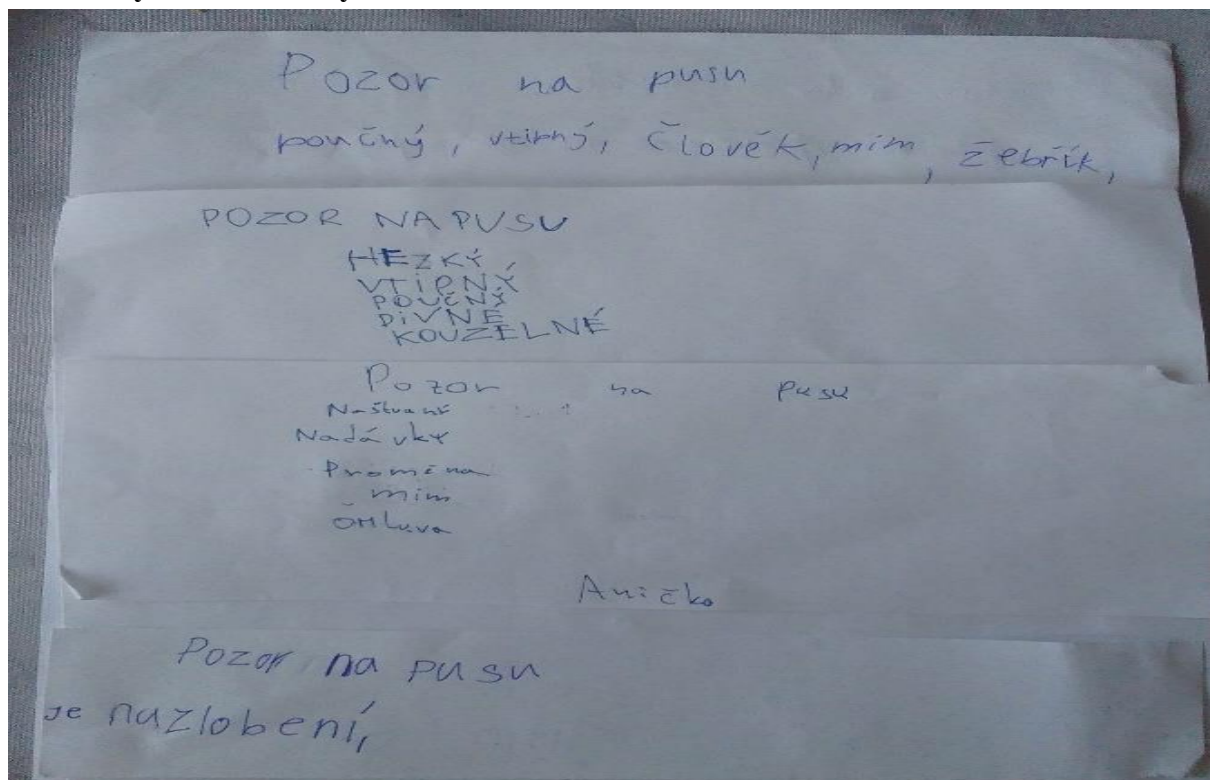 Pozor na pusu
poučný, vtipný, člověk, mim, žebřík,
POZOR NA PUSU
HEZKÝ
VTIPNÝ
POUČNÝ
DIVNÉ
KOUZELNÉ
Pozor na pusu
Naštvaný
Nadávky
Proměna
mim
Omluva
Anička
Pozor na pusu
je nazlobení,